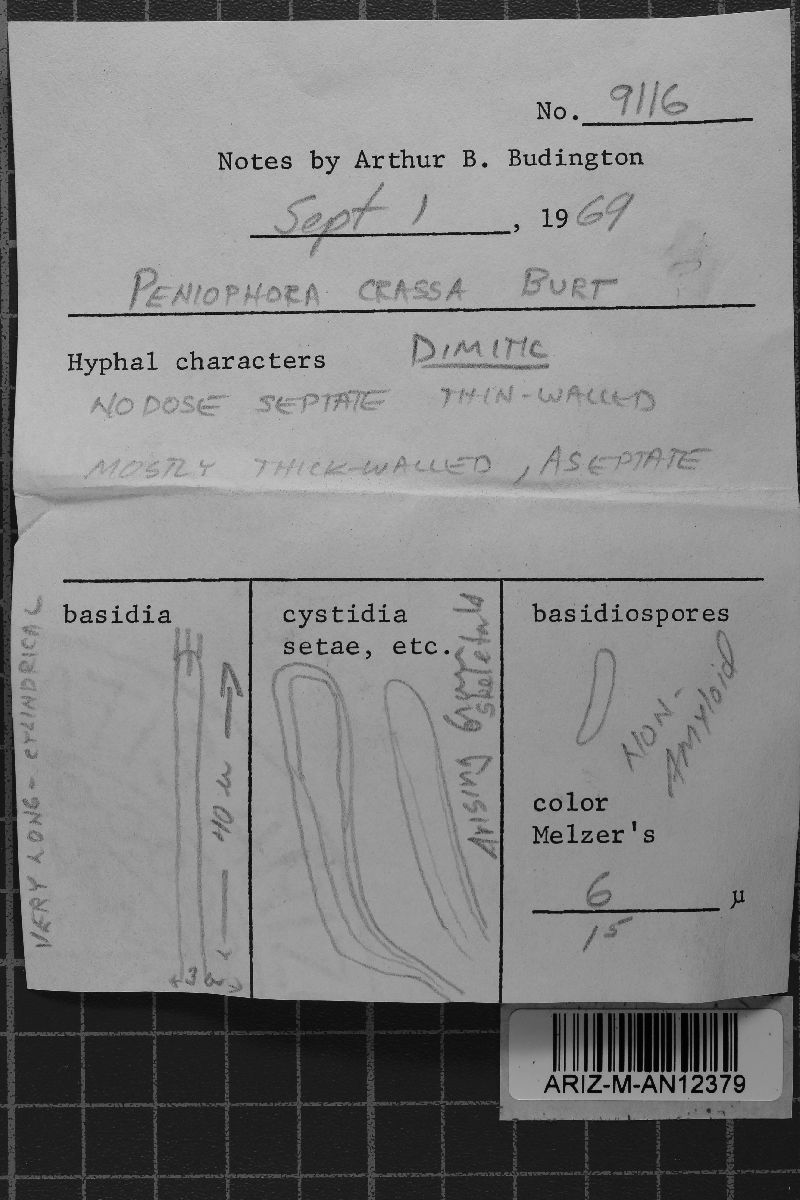 No. 9116
Notes by Arthur B. Budington
Sept 1, 1969
PENIOPHORA CRASSA BURT
Hyphal characters DIMITIC
NODOSE SEPTATE THIN-WALLED
MOSTLY THICK-WALLED, ASEPTATE
basidia
VERY LONG - CYLINDRICAL
40 u
cystidia
setae, etc.
Arising from
skeletals
basidiospores
NON-
AMYloid
color
Melzer's
6 µ
15
ARIZ-M-AN12379